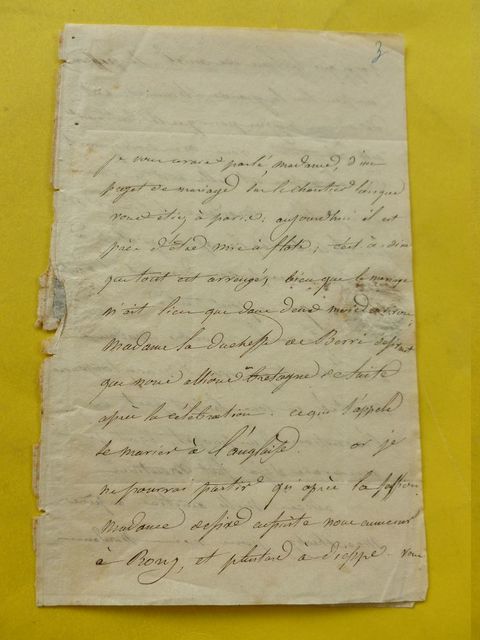 3
je vous avais parlé, madame, d'un
projet de mariage sur le chantier lorsque
vous étiez à paris, aujourdhui il est
près d'être mis à flote; c'est à dire
que tout est arrangé, bien que le mariage
n'ait lieu que dans deux mois environ,
Madame la duchesse de Berri desirant
que nous allions en bretagne de suite
après la célébration. ce qui s'appele
se marier à l'anglaise. or je
ne pourrai partir qu'après la
Madame desire ensuite nous
à Rosny, et plustard à dieppe. vous